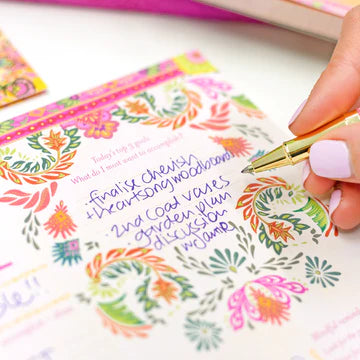 Today's top 3 goals
What do I most want to accomplish?
- finalise cherish
+ heartsong moodboards
- 2nd coat vases
- garden plan
discussion
w James
ble!!